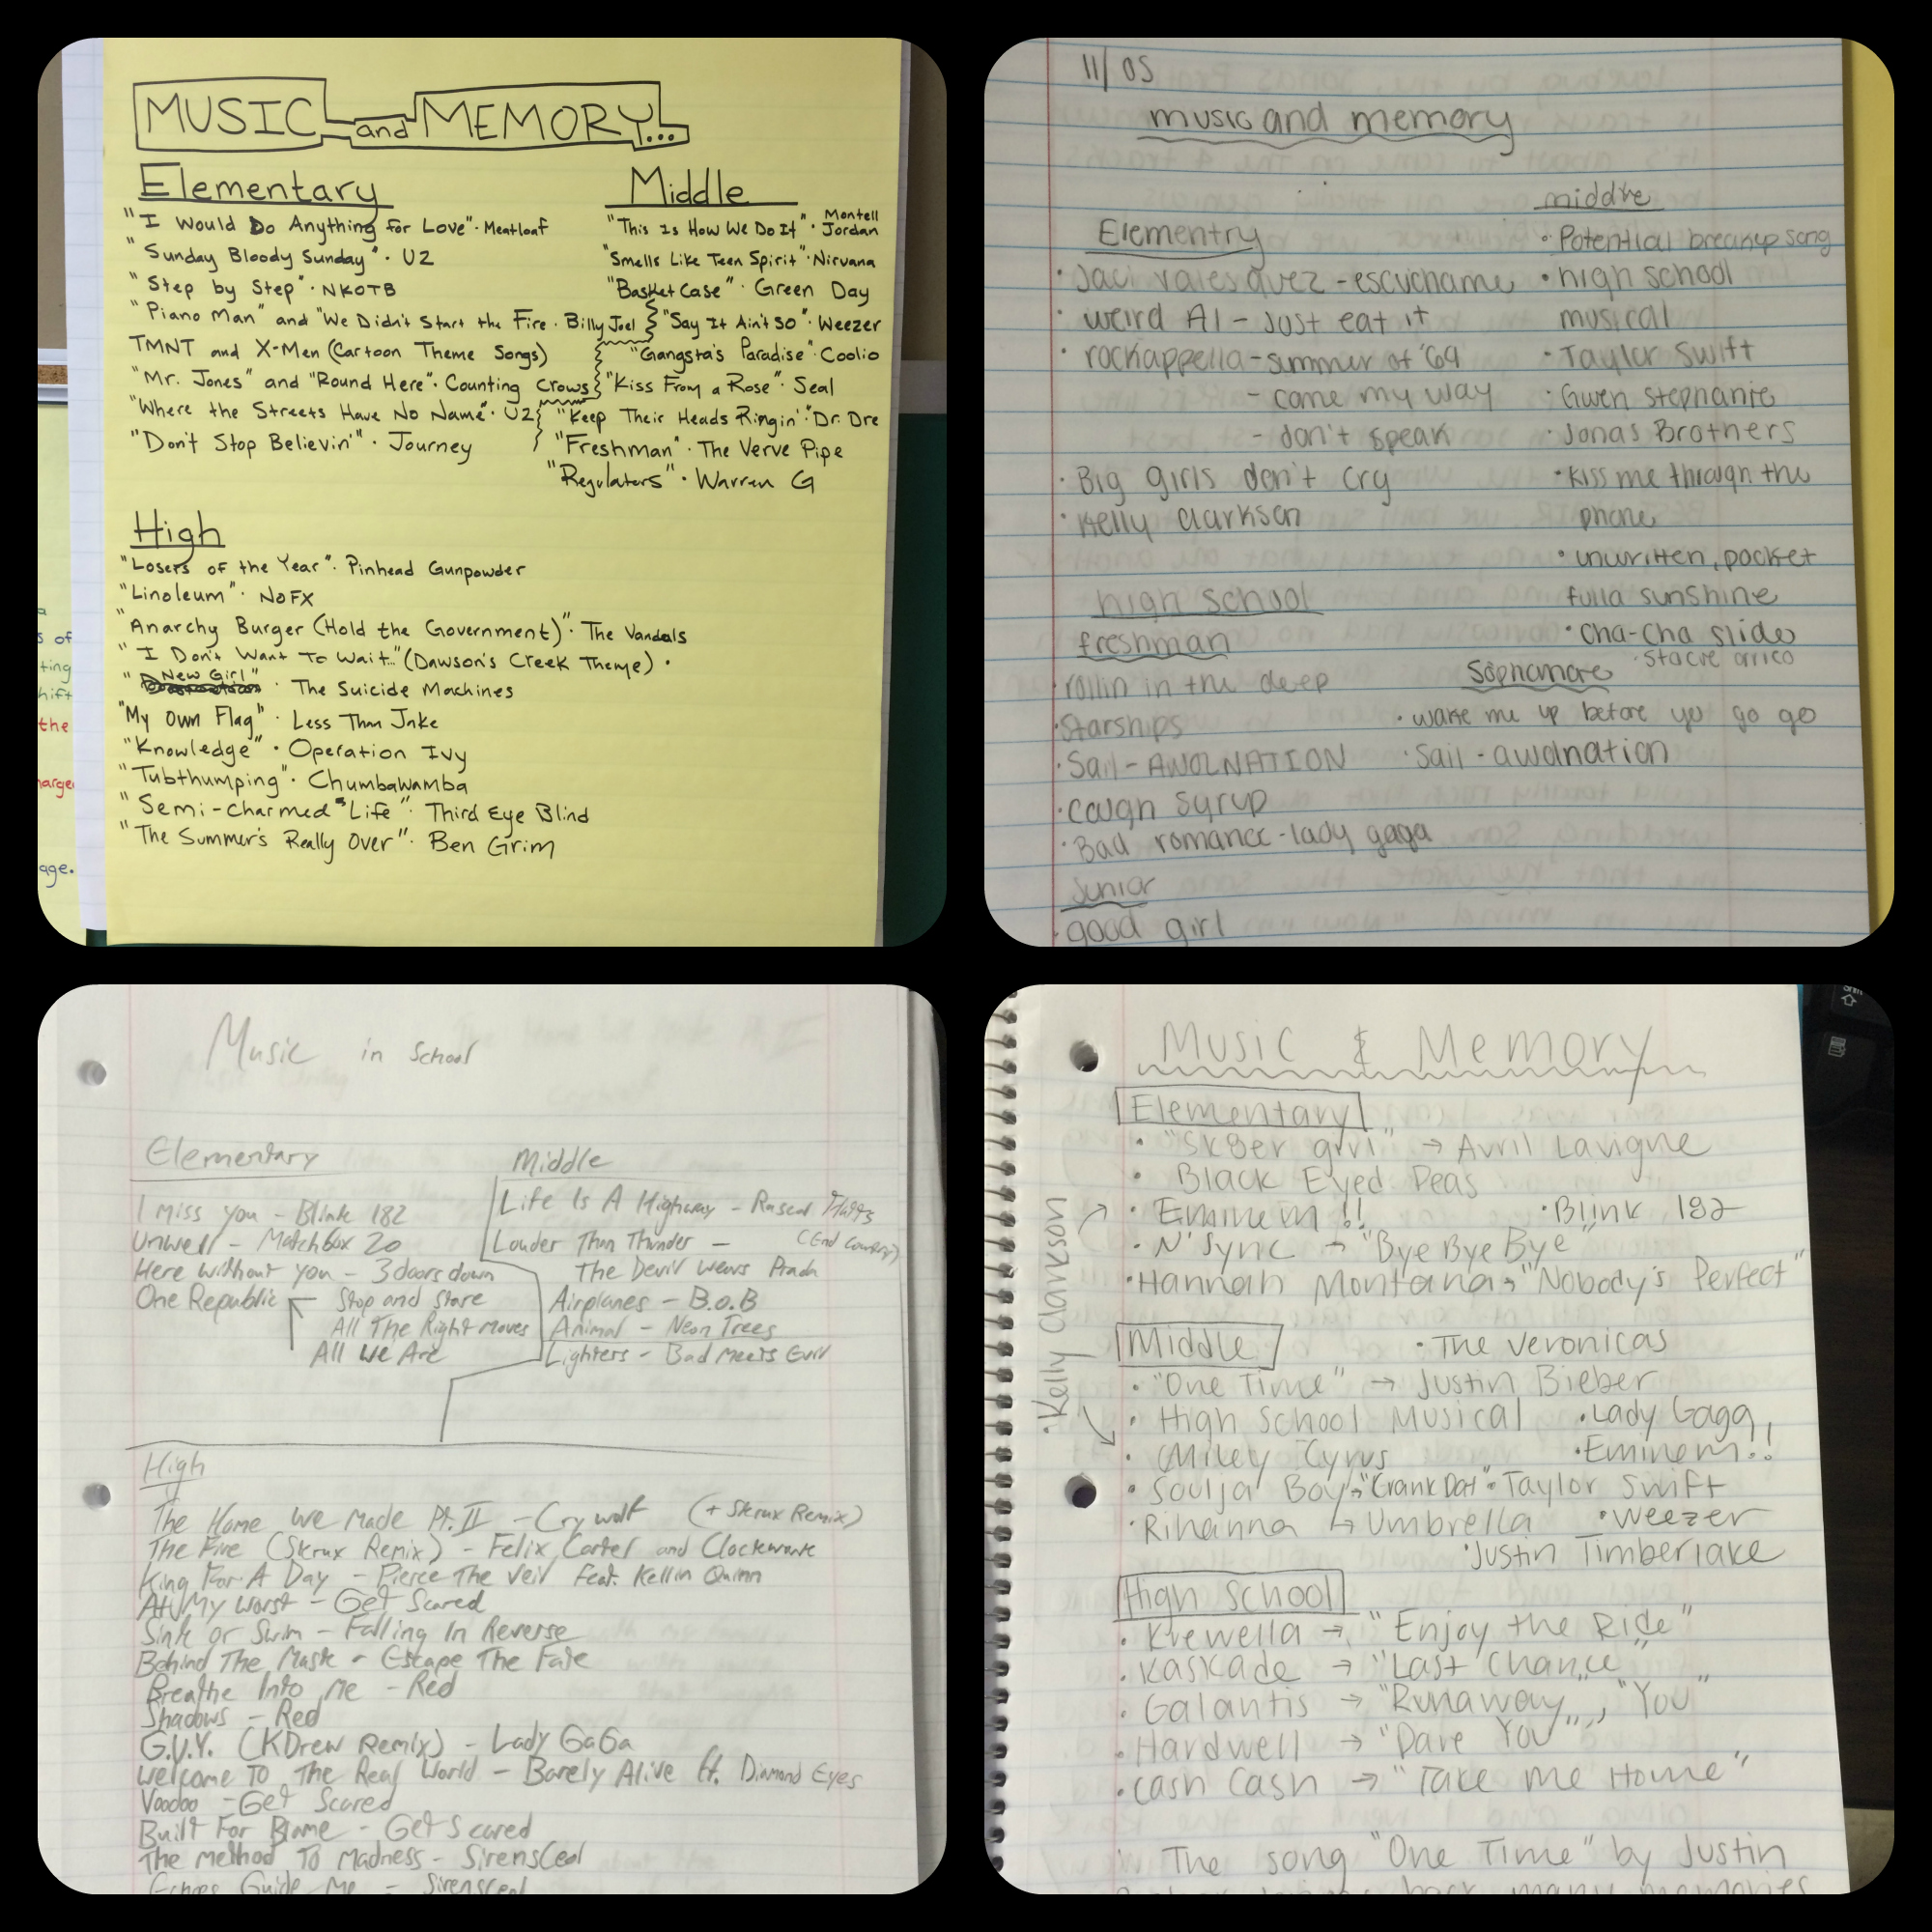 MUSIC and MEMORY...
Elementary
"I Would Do Anything for Love" · Meatloaf
"Sunday Bloody Sunday" · U2
"Step by Step" · NKOTB
"Piano Man" and "We Didn't Start the Fire · Billy Joel
TMNT and X-Men (Cartoon Theme Songs)
"Mr. Jones" and "Round Here" · Counting Crows
"Where the Streets Have No Name" · U2
"Don't Stop Believin'" · Journey
Middle
"This Is How We Do It" · Montell Jordan
"Smells Like Teen Spirit" · Nirvana
"Basket Case" · Green Day
"Say It Ain't So" · Weezer
"Gangsta's Paradise" · Coolio
"Kiss From a Rose" · Seal
"Keep Their Heads Ringin'" · Dr. Dre
"Freshman" · The Verve Pipe
"Regulators" · Warren G
High
"Losers of the Year" · Pinhead Gunpowder
"Linoleum" · NOFX
"Anarchy Burger (Hold the Government)" · The Vandals
"I Don't Want To Wait..." (Dawson's Creek Theme) ·
"New Girl" · The Suicide Machines
"My Own Flag" · Less Than Jake
"Knowledge" · Operation Ivy
"Tubthumping" · Chumbawamba
"Semi-Charmed Life" · Third Eye Blind
"The Summer's Really Over" · Ben Grim
11/05
music and memory
Elementry
· Jaci valesquez - escuchame
· weird Al - Just eat it
· rockappella - summer of '69
- come my way
- don't speak
· Big girls don't cry
· Kelly Clarkson
middle
· Potential breakup song
· high school
musical
· Taylor Swift
· Gwen Stephanie
· Jonas Brothers
· Kiss me through the
phone
· unwritten, pocket
fulla sunshine
· Cha-Cha slide
· Stacie orrico
high school
freshman
· rollin in the deep
· Starships
· Sail - AWOLNATION
· cough syrup
· Bad romance - lady gaga
Sophomore
· wake me up before yo go go
· Sail - awolnation
Junior
· good girl
Music in School
Elementary
I miss you - Blink 182
Unwell - Matchbox 20
Here without you - 3 doors down
One Republic Stop and Stare
All The Right Moves
All We Are
Middle
Life Is A Highway - Rascal Flatts
(End Country)
Louder Than Thunder -
The Devil Wears Prada
Airplanes - B.o.B
Animal - Neon Trees
Lighters - Bad Meets Evil
High
The Home We Made Pt. II - Crywolf (+ Skrux Remix)
The Fire (Skrux Remix) - Felix Cartel and Clockwork
King For A Day - Pierce The Veil feat. Kellin Quinn
At My Worst - Get Scared
Sink or Swim - Falling In Reverse
Behind The Mask - Escape The Fate
Breathe Into Me - Red
Shadows - Red
G.U.Y. (KDrew Remix) - Lady GaGa
Welcome To The Real World - Barely Alive ft. Diamond Eyes
Voodoo - Get Scared
Built For Blame - Get Scared
The Method To Madness - SirensCeol
Echoes Guide Me - SirensCeol
Music & Memory
Elementary
· "Sk8er gurl" → Avril Lavigne
· Black Eyed Peas
· Eminem!! · Blink 182
· N'Sync → "Bye Bye Bye"
· Hannah Montana → "Nobody's Perfect"
· Kelly Clarkson
Middle
· The Veronicas
· "One Time" → Justin Bieber
· High School Musical · Lady Gaga
· Miley Cyrus · Eminem!!
· Soulja Boy → "Crank Dat" · Taylor Swift
· Rihanna ↳ Umbrella · Weezer
· Justin Timberlake
High School
· Krewella → "Enjoy the Ride"
· Kaskade → "Last Chance"
· Galantis → "Runaway", "You"
· Hardwell → "Dare You"
· Cash Cash → "Take me Home"
The song "One Time" by Justin
back many memories